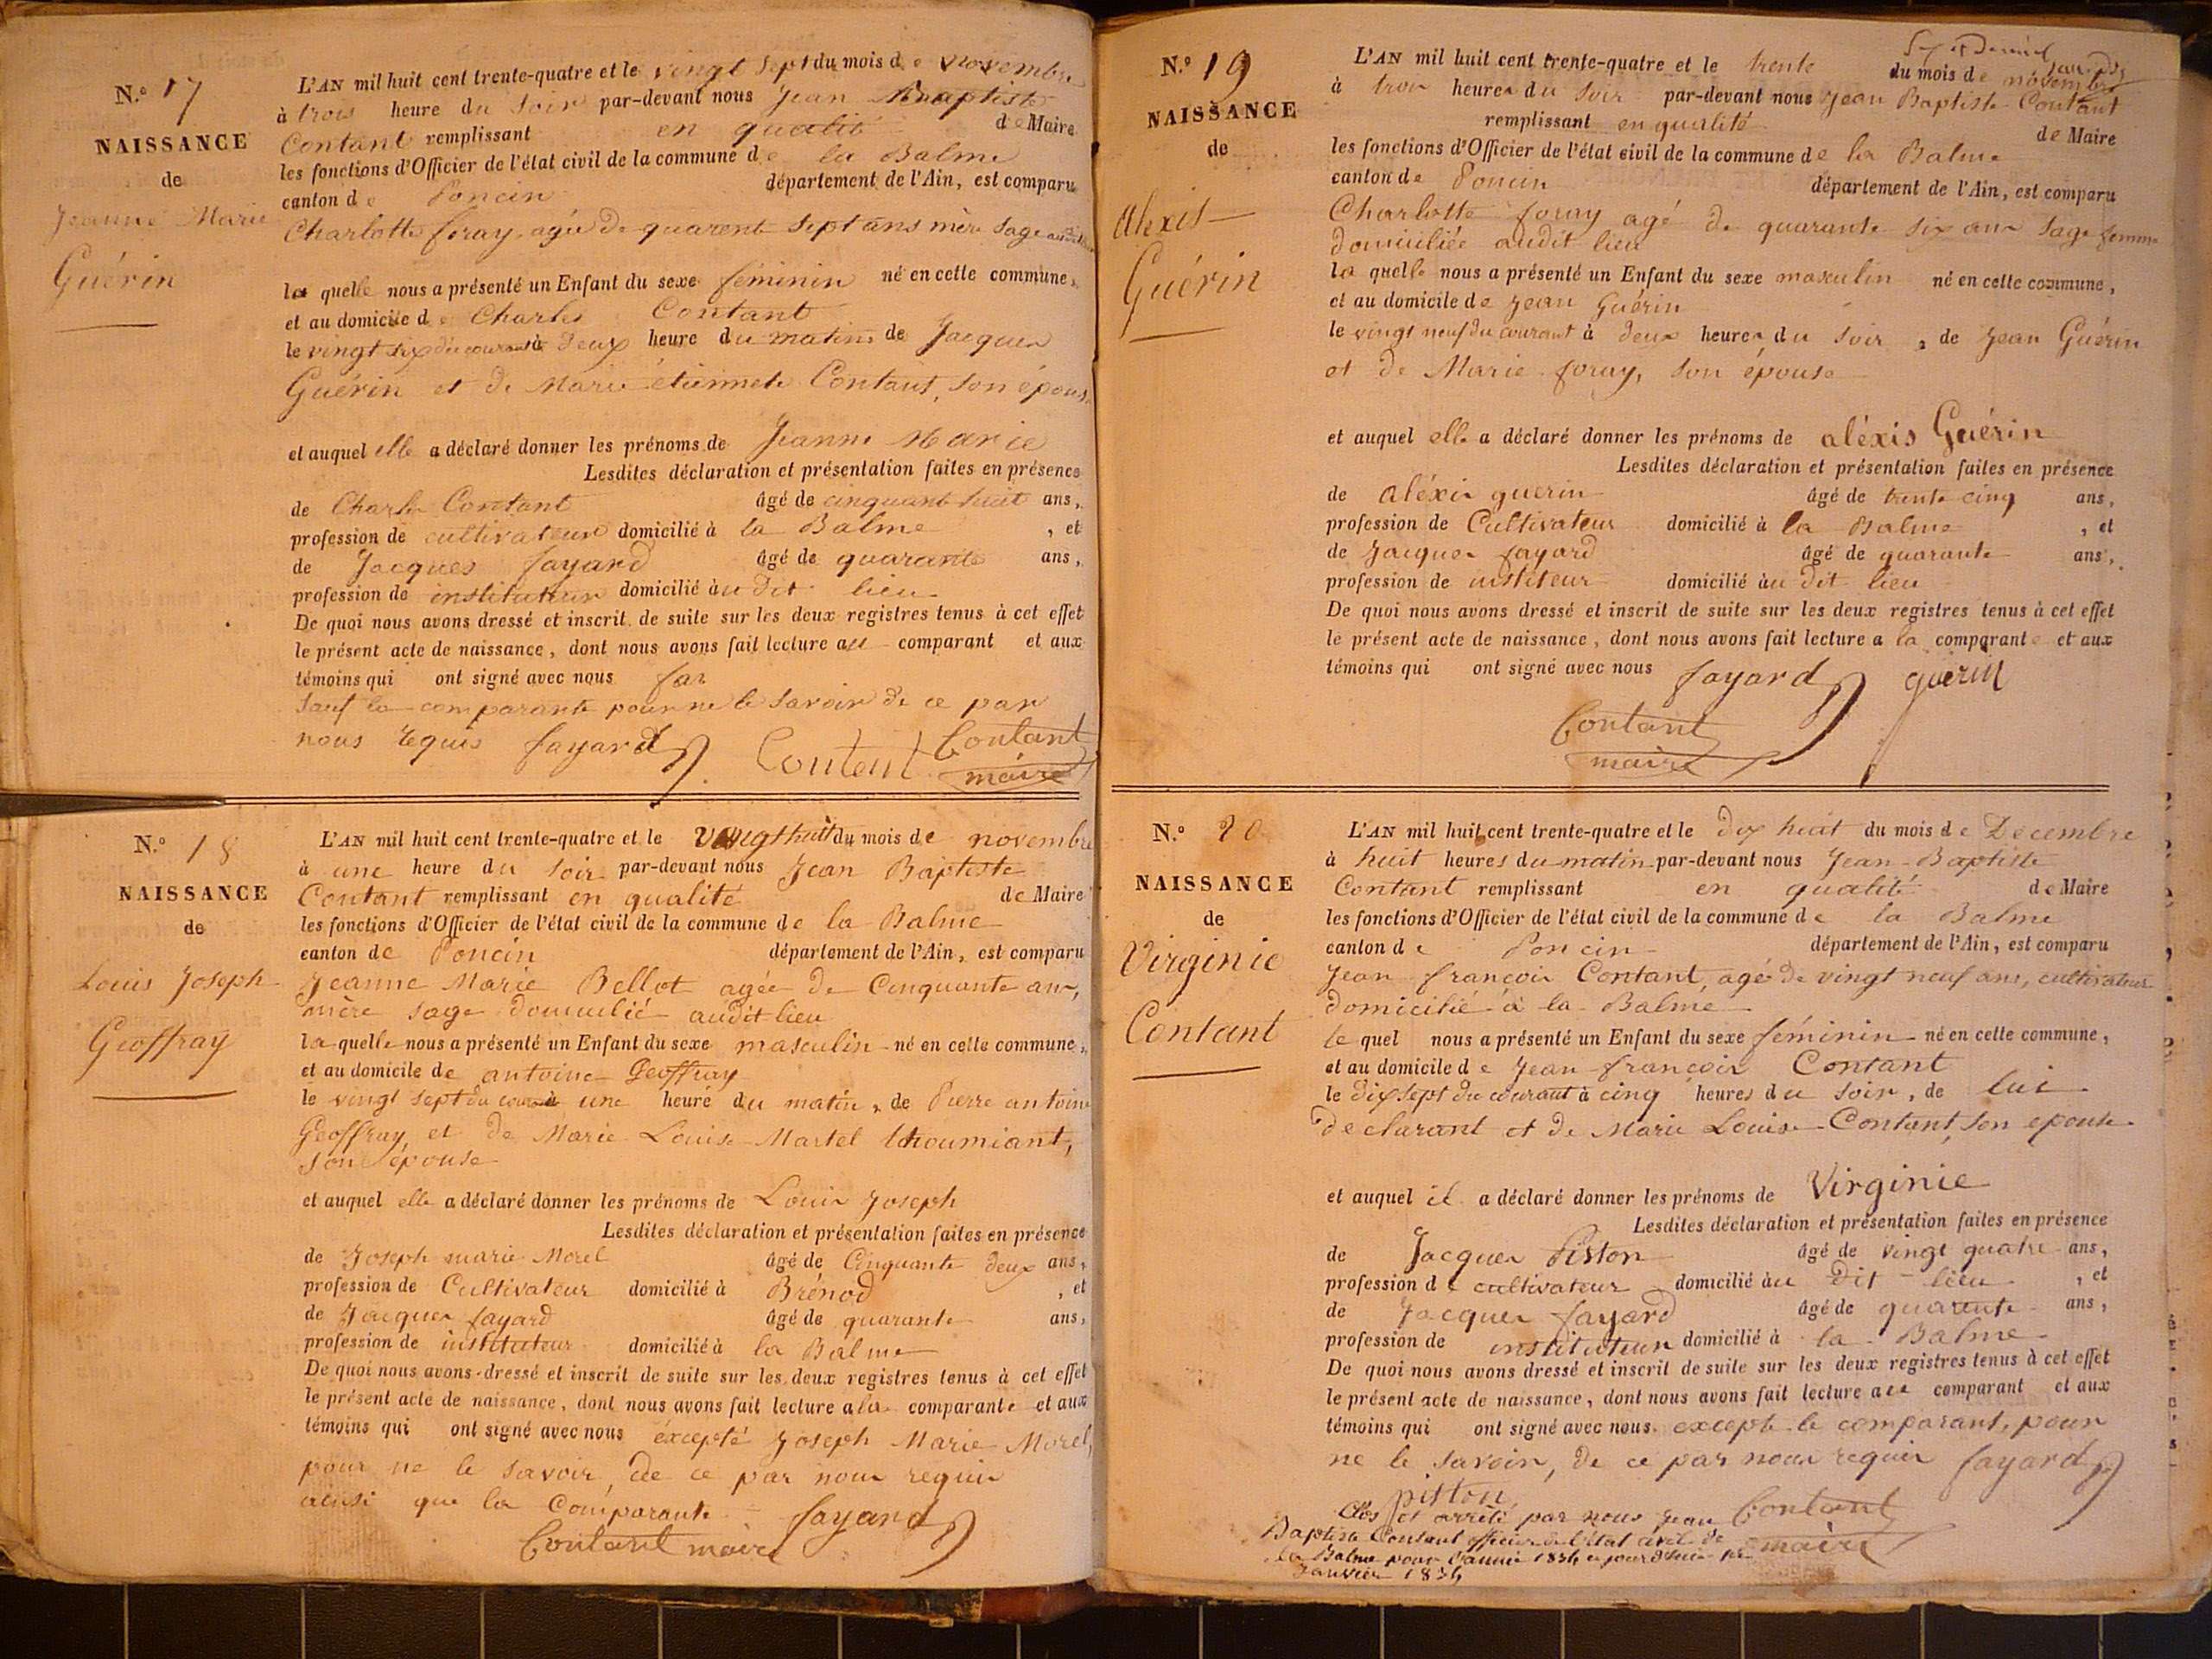 N.° 17
NAISSANCE
de
Jeanne Marie
Guérin
L'AN mil huit cent trente-quatre et le vingt sept du mois de novembre
à trois heure du soir par-devant nous Jean Baptiste
Contant remplissant en qualité de Maire
les fonctions d'Officier de l'état civil de la commune de la Balme
canton de Poncin département de l'Ain, est comparu
Charlotte foray, agée de quarente sept ans mère sage
la quelle nous a présenté un Enfant du sexe féminin né en cette commune,
et au domicile de Charles Contant
le vingt six du courant à deux heure du matin de Jacques
Guérin et de Marie étiennete Contant, son épouse
et auquel elle a déclaré donner les prénoms de Jeanne Marie
Lesdites déclaration et présentation faites en présence
de Charle Contant âgé de cinquante huit ans,
profession de cultivateur domicilié à la Balme , et
de Jacques fayard âgé de quarante ans,
profession de instituteur domicilié au dit lieu
De quoi nous avons dressé et inscrit de suite sur les deux registres tenus à cet effet
le présent acte de naissance, dont nous avons fait lecture au comparant et aux
témoins qui ont signé avec nous
sauf la comparante pour ne le savoir de ce par
nous requis fayard Contant Contant
maire
N.° 18
NAISSANCE
de
Louis Joseph
Geoffray
L'AN mil huit cent trente-quatre et le vingt huit du mois de novembre
à une heure du soir par-devant nous Jean Baptiste
Contant remplissant en qualité de Maire
les fonctions d'Officier de l'état civil de la commune de la Balme
canton de Poncin département de l'Ain, est comparu
Jeanne Marie Bellot agée de Cinquante ans,
mère sage domicilié audit lieu
la quelle nous a présenté un Enfant du sexe masculin né en cette commune,
et au domicile de antoine Geoffray
le vingt sept du courant à une heure du matin, de Pierre antoine
Geoffray, et de Marie Louise Martel thoumiant,
son épouse
et auquel elle a déclaré donner les prénoms de Louis Joseph
Lesdites déclaration et présentation faites en présence
de Joseph marie Morel âgé de Cinquante deux ans,
profession de Cultivateur domicilié à Brénod , et
de Jacques fayard âgé de quarante ans,
profession de instituteur domicilié à la Balme
De quoi nous avons dressé et inscrit de suite sur les deux registres tenus à cet effet
le présent acte de naissance, dont nous avons fait lecture a la comparante et aux
témoins qui ont signé avec nous éxcepté Joseph Marie Morel,
pour ne le savoir, de ce par nous requis
ainsi que la Comparante fayard
Contant maire
N.° 19
NAISSANCE
de
alexis
Guérin
L'AN mil huit cent trente-quatre et le trente du mois de novembre
à trois heures du soir par-devant nous Jean Baptiste Contant
remplissant en qualité de Maire
les fonctions d'Officier de l'état civil de la commune de la Balme
canton de Poncin département de l'Ain, est comparu
Charlotte foray agé de quarante six ans sage femme
domiciliée audit lieu
la quelle nous a présenté un Enfant du sexe masculin né en cette commune,
et au domicile de Jean Guérin
le vingt neuf du courant à deux heures du soir, de Jean Guérin
et de Marie foray, son épouse
et auquel elle a déclaré donner les prénoms de aléxis Guérin
Lesdites déclaration et présentation faites en présence
de aléxis guerin âgé de trente cinq ans,
profession de Cultivateur domicilié à la Balme , et
de Jacques fayard âgé de quarante ans,
profession de institeur domicilié au dit lieu
De quoi nous avons dressé et inscrit de suite sur les deux registres tenus à cet effet
le présent acte de naissance, dont nous avons fait lecture a la comparante et aux
témoins qui ont signé avec nous fayard guerin
Contant
maire
N.° 20
NAISSANCE
de
Virginie
Contant
L'AN mil huit cent trente-quatre et le dix huit du mois de Decembre
à huit heures du matin par-devant nous Jean Baptiste
Contant remplissant en qualité de Maire
les fonctions d'Officier de l'état civil de la commune de la Balme
canton de Poncin département de l'Ain, est comparu
Jean françois Contant, agé de vingt neuf ans, cultivateur
domicilié à la Balme
le quel nous a présenté un Enfant du sexe féminin né en cette commune,
et au domicile de Jean françois Contant
le dix sept du courant à cinq heures du soir, de lui
declarant et de Marie Louise Contant, son epouse
et auquel il a déclaré donner les prénoms de Virginie
Lesdites déclaration et présentation faites en présence
de Jacques Piston âgé de vingt quatre ans,
profession de cultivateur domicilié au dit lieu , et
de Jacques fayard âgé de quarente ans,
profession de instituteur domicilié à la Balme
De quoi nous avons dressé et inscrit de suite sur les deux registres tenus à cet effet
le présent acte de naissance, dont nous avons fait lecture au comparant et aux
témoins qui ont signé avec nous excepte le comparant, pour
ne le savoir, de ce par nous requis fayard
piston
Clos et arrêté par nous Jean Contant
Baptiste Contant officier de l'état civil de maire
la Balme pour l'année 1834 ce jourd'hui
Janvier 1834